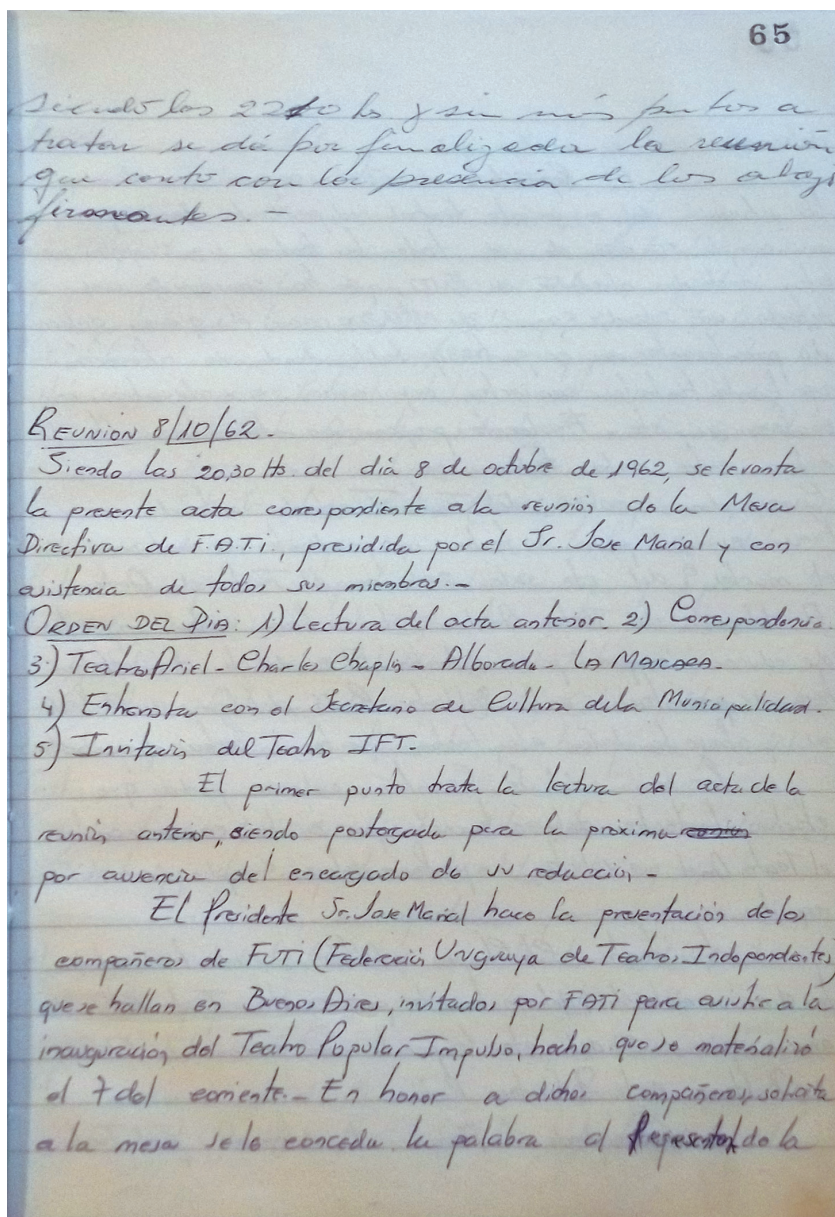 65
siendo las 2210 hs y sin más puntos a
tratar se dá por finalizada la reunión
que conto con la presencia de los abajo
firmantes. -
REUNION 8/10/62.-
Siendo las 20,30 Hs. del dia 8 de octubre de 1962, se levanta
la presente acta correspondiente a la reunión de la Mesa
Directiva de F.A.T.i., presidida por el Sr. Jose Marial y con
asistencia de todos sus miembros.-
ORDEN DEL DIA: 1) Lectura del acta anterior. 2) Correspondencia.
3) Teatro Ariel - Charles Chaplin - Alborada - LA MASCARA.
4) Entrevista con el Secretario de Cultura de la Municipalidad.
5) Invitación del Teatro IFT.
El primer punto trata la lectura del acta de la
reunión anterior, siendo postergada para la próxima reunión
por ausencia del encargado de su redacción -
El Presidente Sr. Jose Marial hace la presentación de los
compañeros de FUTi (Federación Uruguaya de Teatros Independientes)
que se hallan en Buenos Aires, invitados por FATi para asistir a la
inauguración del Teatro Popular Impulso, hecho que se materializó
el 7 del corriente.- En honor a dichos compañeros, solicita
a la mesa se le conceda la palabra al de la